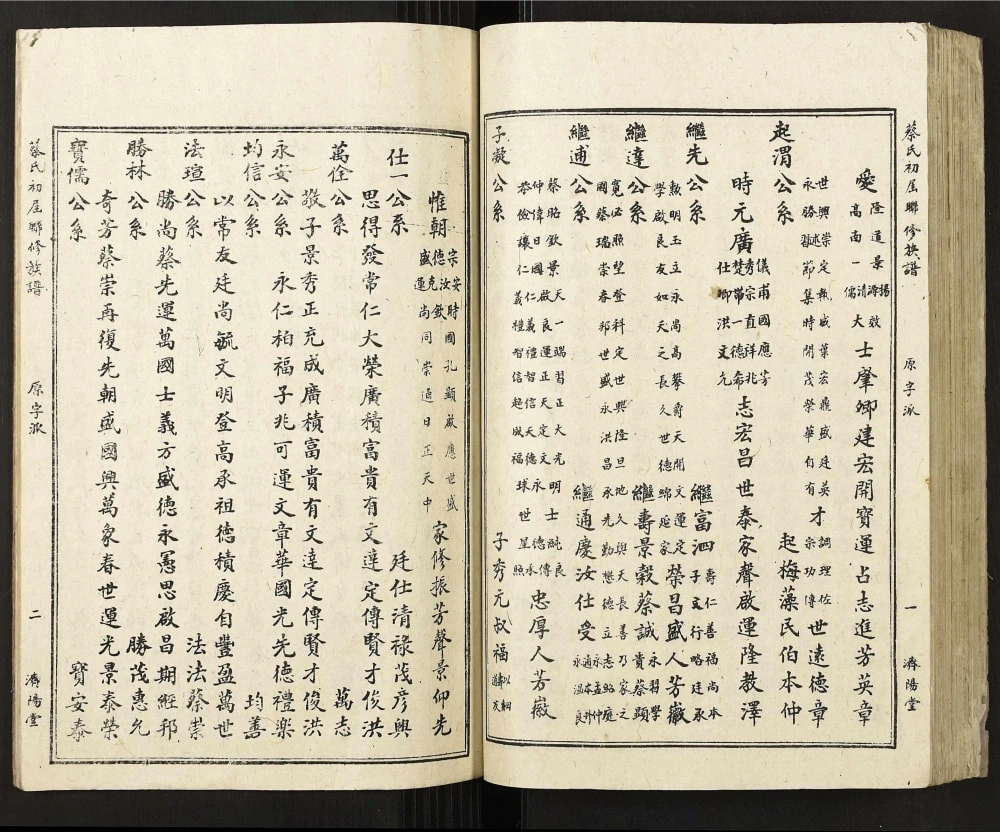 蔡氏初屆聯修族譜 原字派 一 濟陽堂
愛 隆道景揚 高南一清源效 儒大士肇卿建宏開寶運占志進芳英章
世興崇定熱威葉宏鼎盛廷英才調理佐世遠德章
永勝 節集時開茂榮華自有宗功傳
起渭公系 起梅藻民伯本仲
時元廣 儀甫國應芳 秀宗直祥兆 楚帶一德希 仕卿洪文允 志宏昌世泰家聲啟運隆教澤
繼先公系 繼富泗 壽仁善福尚本 子文行略廷承
敦明玉立永尚高攀爵天開文運定 榮昌盛人芳徽
學啟良友如天之長久世德綿延家
繼達公系 繼壽景穀蔡誠 永習學 貴蔡顯
寬必照堂登科定世興隆旦地久與天長善乃家之
國蔡瑞崇春邦世盛永洪昌承先勤懋德立志紹庭
繼逋公系 繼通慶汝仕受
蔡昭欽景天一端習正大光明士 良
仲偉日國啟良運正天定文 德傳 忠厚人芳徽
恭儉讓仁義禮智信起風福球世星照
子凝公系 子秀元叔福
惟朝 宗安時國孔顯啟應世盛 德汝欽 盛克尚同崇 日正天中 運 家修振芳聲景仰先
仕一公系 廷仕清祿茂彥興
思得發常仁大榮廣積富貴有文達定傳賢才俊洪
萬佺公系 萬志
敬子景秀正充成廣積富貴有文達定傳賢才俊洪
永安公系 永仁柏福子兆可運文章華國光先德禮樂
均信公系 均善
以常友廷尚毓文明登高承祖德積慶自豐盈萬世
法瑄公系 法法蔡崇
勝尚蔡先運萬國士義方盛德永憲思啟昌期經邦
勝林公系 勝茂惠允
奇芳蔡崇再復先朝盛國興萬象春世運光景泰榮
寶儒公系 寶安泰
蔡氏初屆聯修族譜 原字派 二 濟陽堂